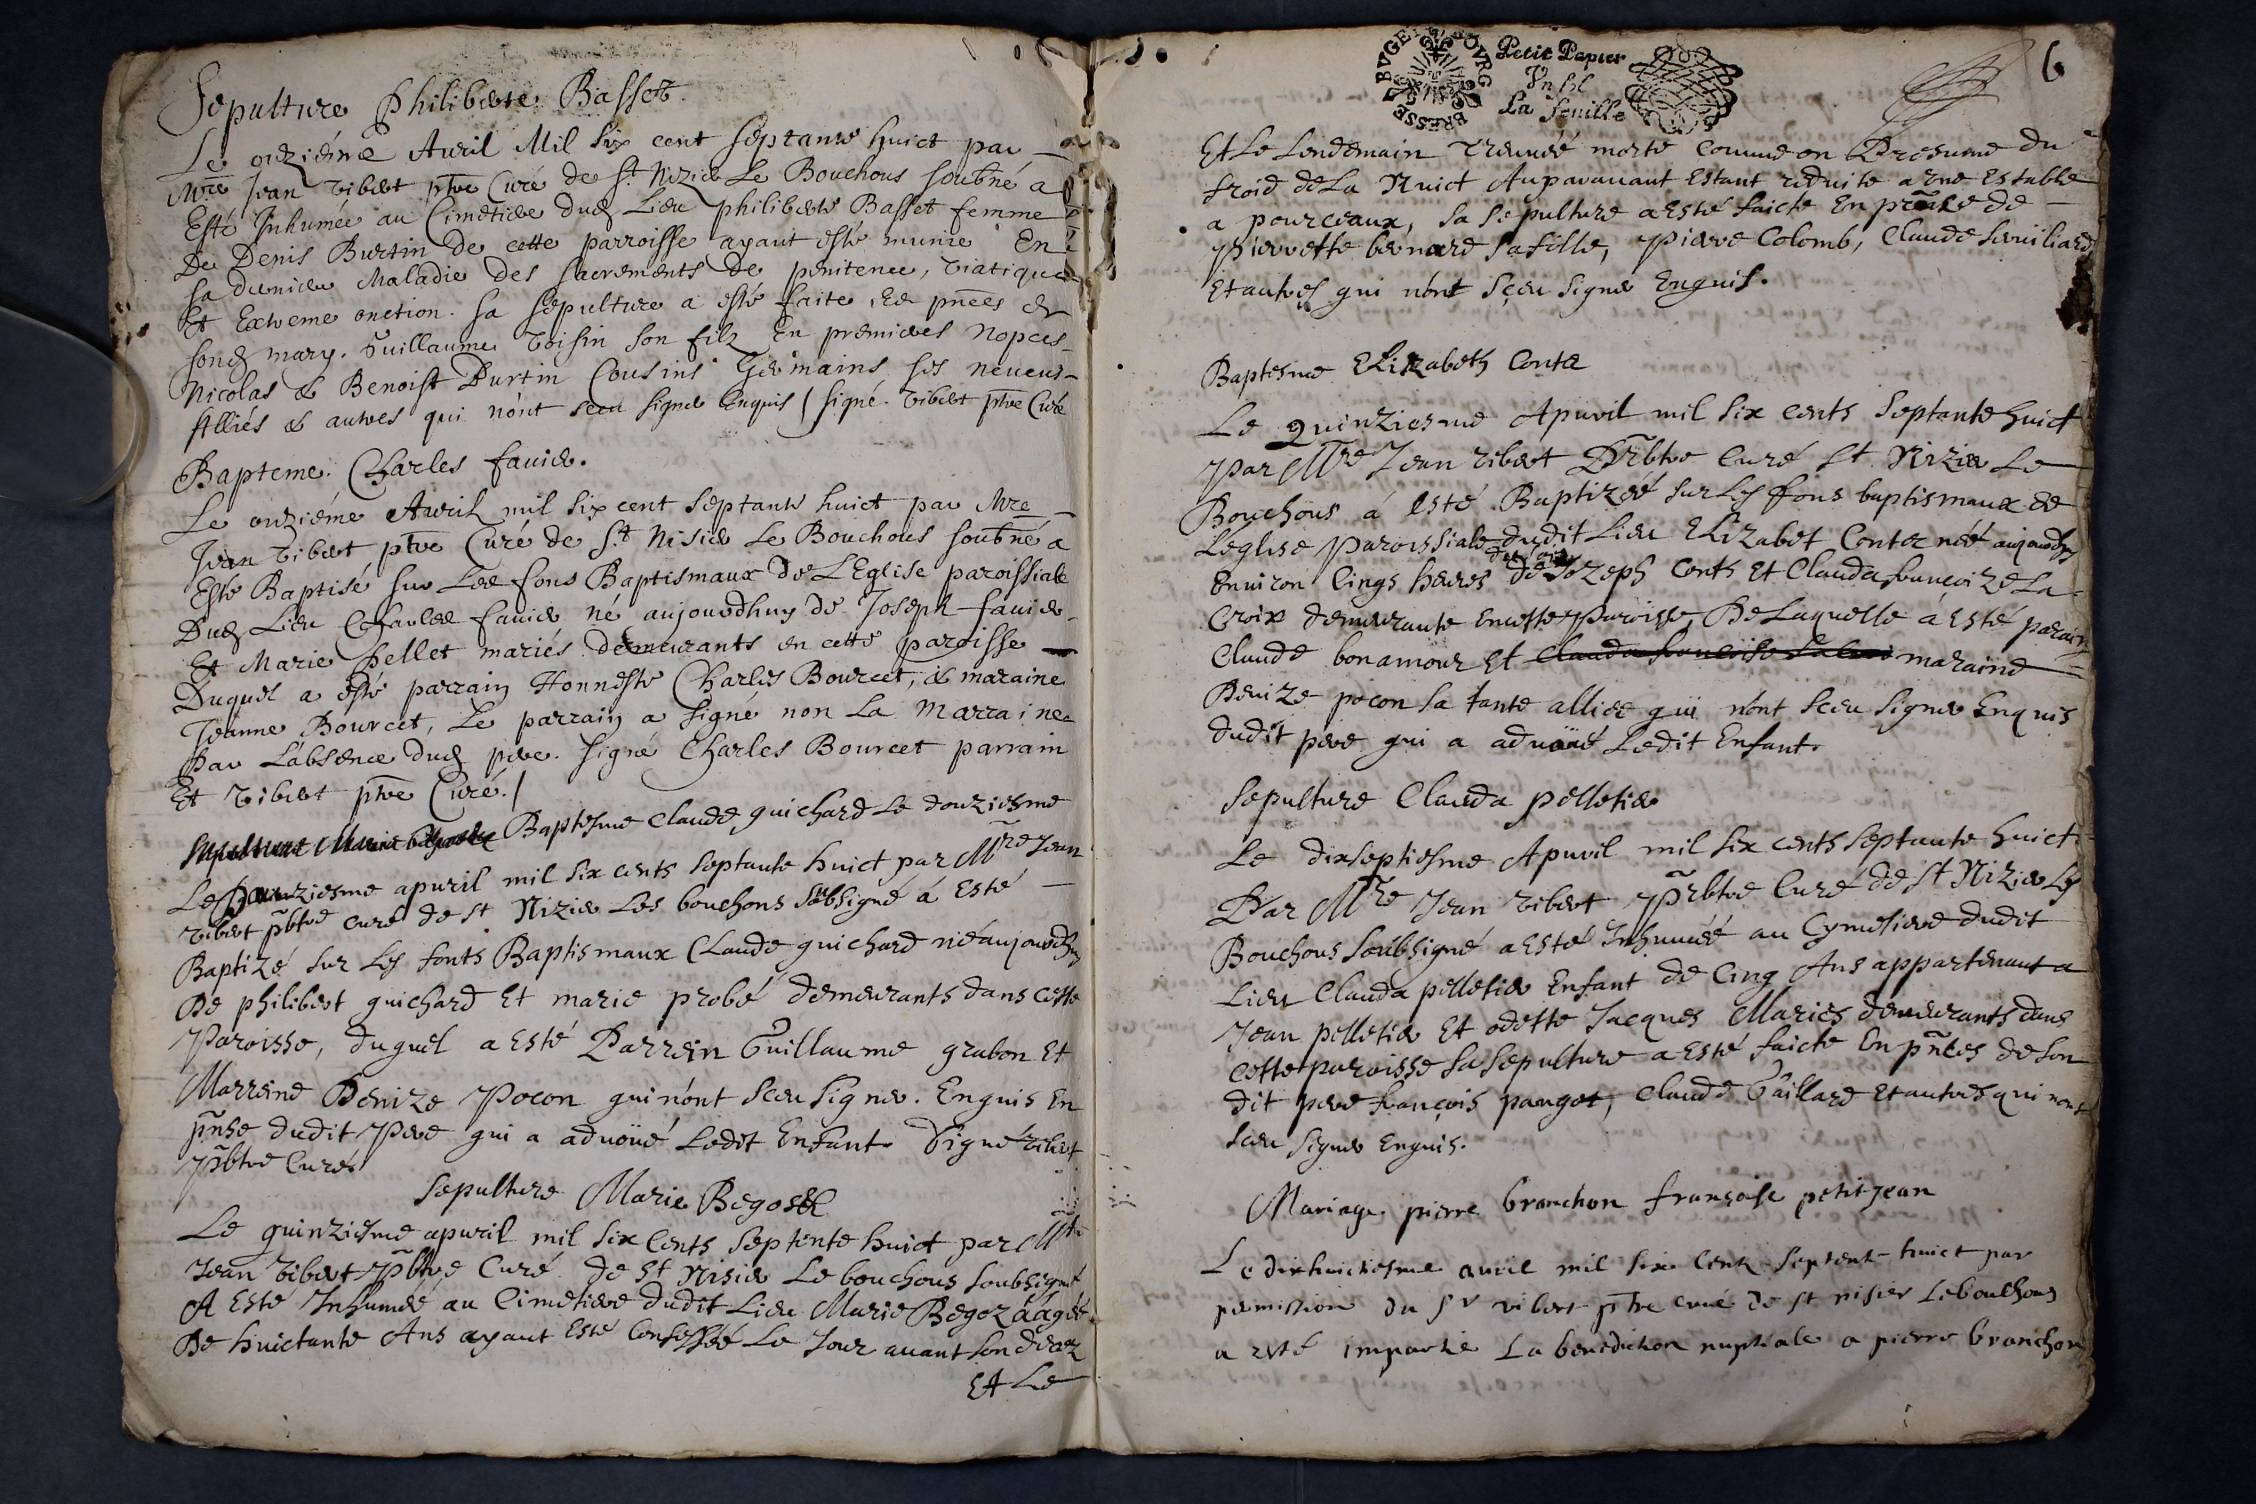 Sepulture Philiberte Basset.
Le onziéme Auril Mil Six cent septante huict par
Mre Jean Vibert ptre Curé de St Nizier Le Bouchous soubné a
Esté Inhumée au Cimetiere dud Lieu philiberte Basset femme
De Denis Burtin de cette parroisse ayant esté munie En
sa derniere Maladie des sacrements de penitence, viatique
Et Extreme onction. sa sepulture a esté faite, Ez pnces de
sond mary. Guillaume Voisin son filz En premieres nopces
Nicolas & Benoist Burtin Cousins Germains ses neueus
Alliés & autres qui nónt sceu signer Enquis / signé. Vibert ptre Curé
Bapteme. Charles fauier.
Le onziéme Auril mil six cent septante huict par Mre
Jean Vibert ptre Curé de St Nisier Le Bouchous soubné a
Esté Baptisé sur Les fons Baptismaux de L'Eglise paroissiale
Dud Lieu Charles fauier né aujourdhuy de Joseph fauier
Et Marie pellet mariés demeurants en cette paroisse
Duquel a esté parrain Honneste Charles Bourcet, & maraine
Jeanne Bourcet, Le parrain a signé non La marraine
par L'absence dud pere. signé Charles Bourcet parrain
Et Vibert ptre Curé./
Sepulture Marie Baptesme Claude guichard Le douziesme
Le douziesme apuril mil six cents septante huict par Mre Jean
Vibert pbtre curé de St Nizier Les bouchons subsigné á Esté
Baptizé sur Les fonts Baptismaux Claude guichard né aujourdhuy
De philibert guichard Et marie probé demeurants dans cette
Paroisse, duquel a Esté Parrein Guillaume grabon Et
Marreine Denize Pocon qui nónt sceu signer. Enquis En
pnse dudit Pere qui a aduoüé Ledit Enfant. Signé Vibert
Pbtre Curé
sepulture Marie Begoz
Le quinziesme apuril mil six Cents septente huict par Mre
Jean Vibert Pbtre Curé de St Nisier Le bouchous Soubsigné
A Esté Inhumée au Cimetiere dudit Lieu Marie Begoz áagée
De huictante Ans ayant Esté Confessée Le Jour auant son decez
Et Le
BVGEY BOVRG BRESSE
Petit Papier
Vn sol
La feuille
6
Et Le Lendemain Treuuéé morte comme on Presume du
froid de La Nuict Auparauant Estant reduite a vne Estable
a pourceaux, sa sepulture a Esté faicte En prēnce de
Pierrette bernard sa fille, Pierre Colomb, Claude
Et autres qui nónt sceu signer Enquis.
Baptesme Elizabeth Conte
Le quinziesme Apuril mil six cents septante huict
Par Mre Jean Vibert Prbtre Curé St Nizier Le
Bouchous á Esté Baptizéé sur Les fons baptismaux de
Leglise Paroissiale dudit Lieu Elizabet Conte néé aujourdhuy
Enuiron Cinqs heures du soir de Jozeph Conte Et Clauda francoize La
Croix demeurante En cette Paroisse, De Laquelle á Esté parain
Claude bonamour Et Clauda francoise Lacroix maraine
Denize pocon sa tante alliée qui nónt sceu signer Enquis
dudit pere qui a aduoüé Ledit Enfant.
Sepulture Clauda pelletier
Le dixseptiesme Apuril mil six cents septante huict
Par Mre Jean Vibert Prbtre Curé de St Nizier Les
Bouchous Soubsigné a Esté Inhuméé au Cymetiere dudit
Lieu Clauda pelletier Enfant de Cinq Ans appartenant a
Jean pelletier Et odette Jacques Mariés demeurants dans
cette paroisse sa sepulture a Esté faicte En pnces de son
dit pere françois pangot, Claude Gaillard Et autres qui nont
sceu signer Enquis.
Mariage pierre branchon fransoise petitjean
Le dixhuictiesme auril mil six Cent septente huict par
permission du Sr vibert ptre curé de st nisier Lebouchous
a esté impartie La benediction nuptiale a pierre branchon